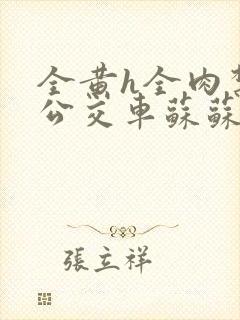 全黄h全肉禁
公交車蘇蘇
張立祥